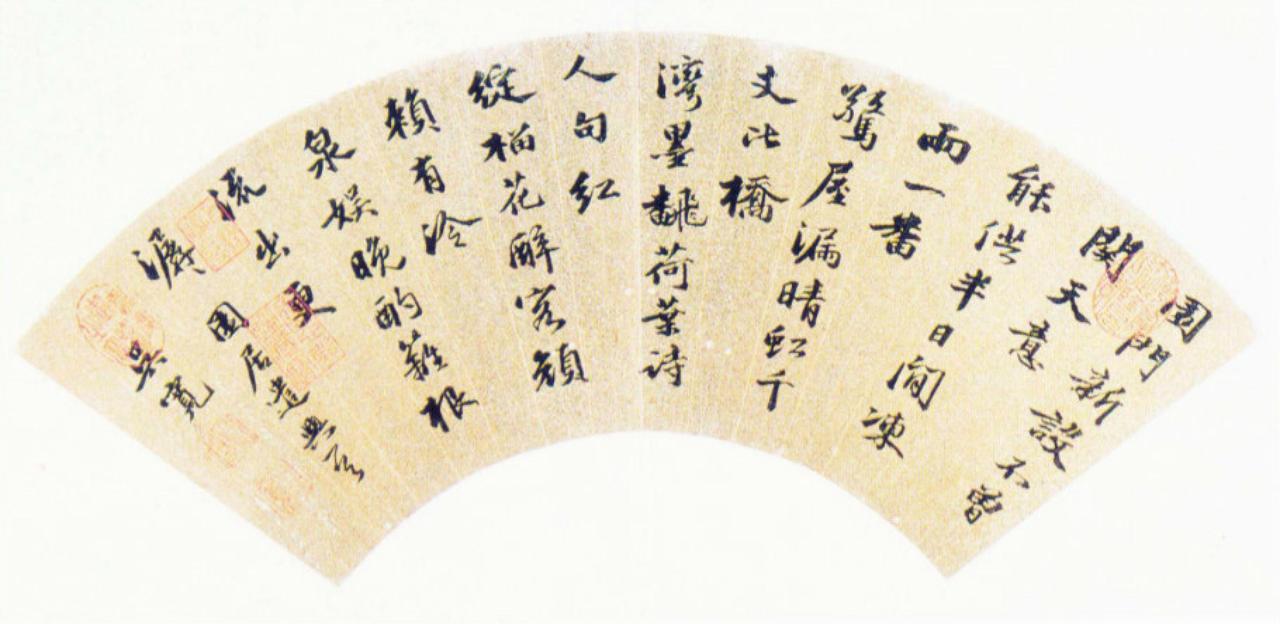 園門新設不曾
關天意
能供半日閒凍
雨一番
驚屋漏晴虹千
丈比橋
灣墨飜荷葉詩
人句紅
綻榴花醉客顏
賴有冷
泉娛晚酌籬根
流出更
潺 園居遣興
吳寬